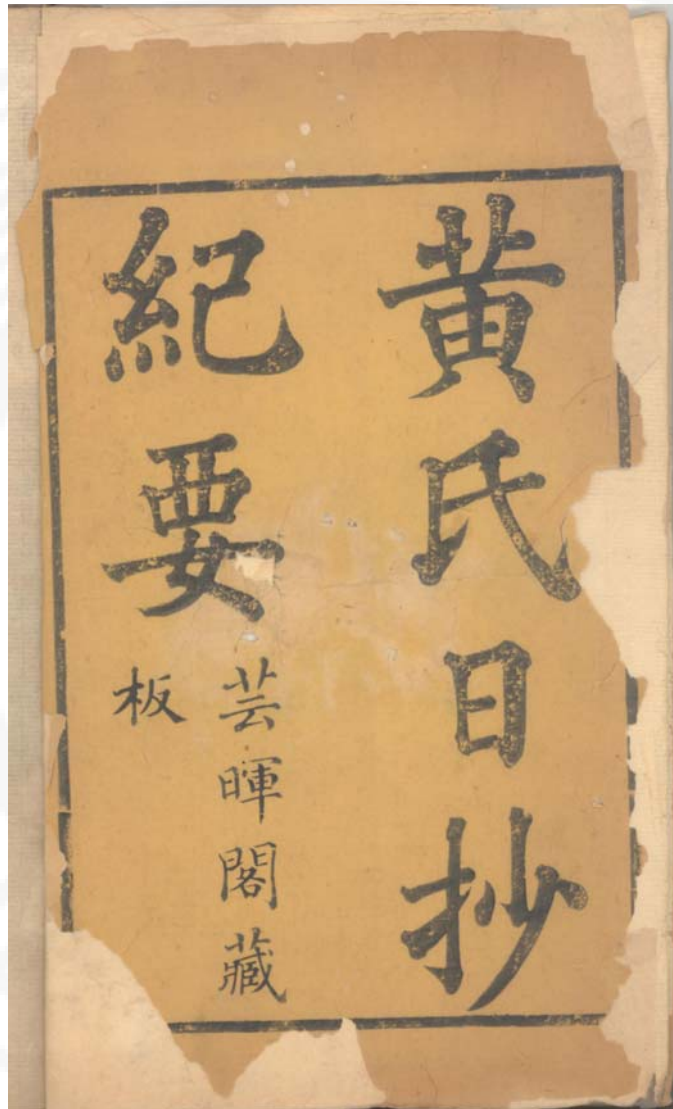 黄氏日抄
紀要
芸暉閣藏
板